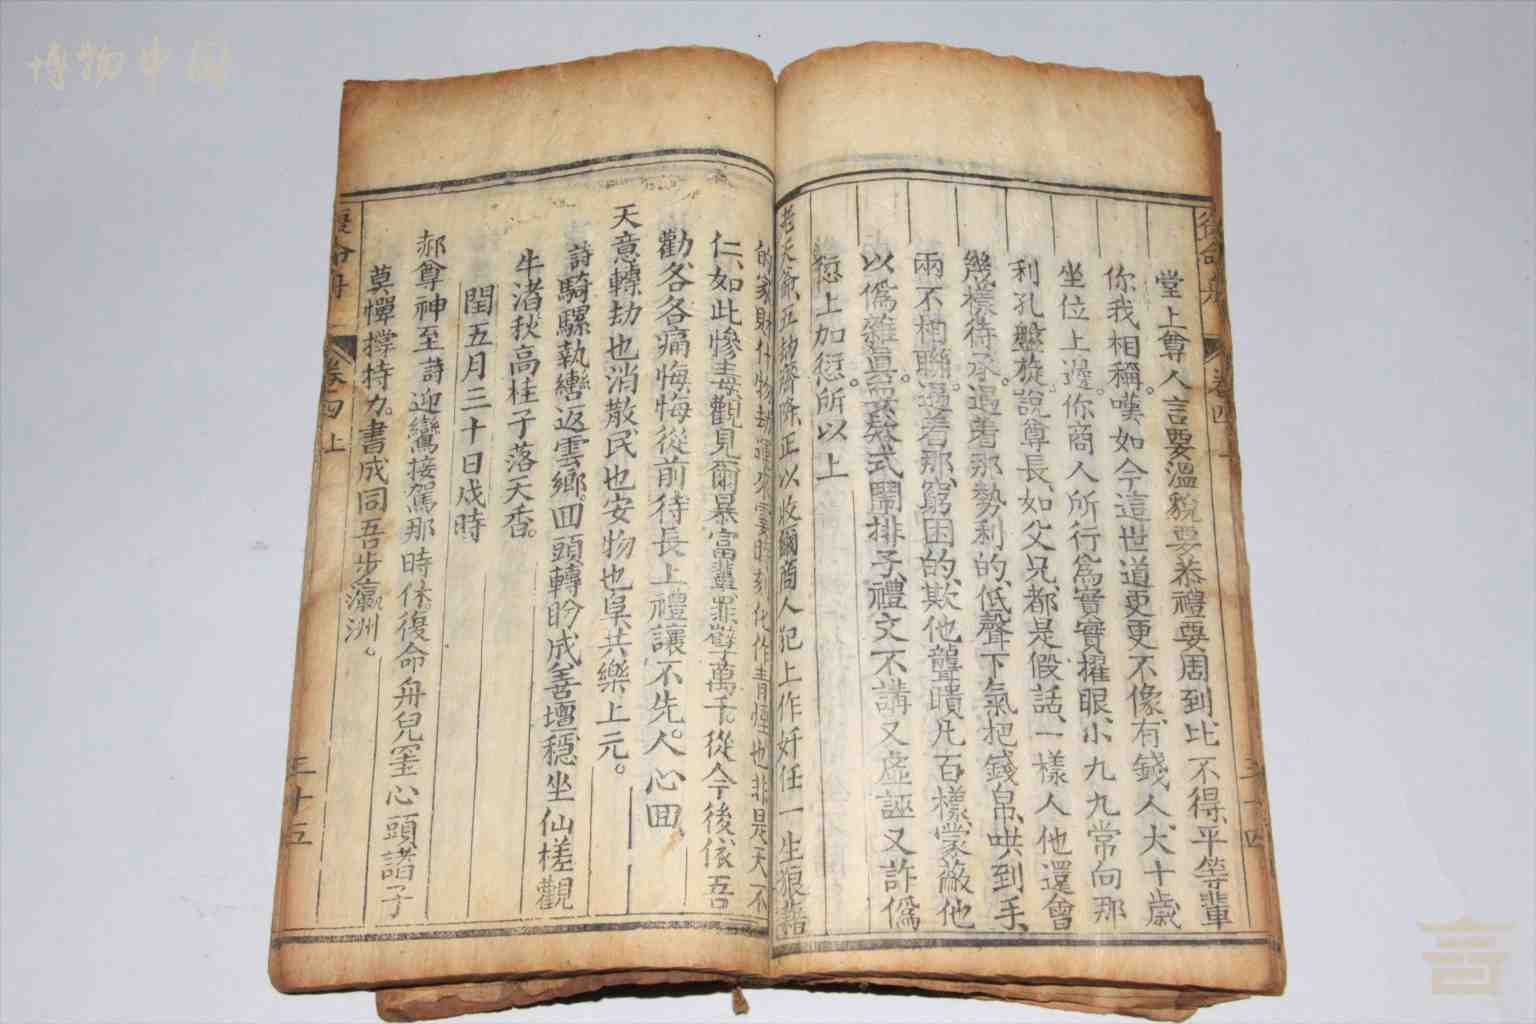 博物中国
復命舟
卷四上
堂上尊人言要溫貌要恭禮要周到比不得平等輩
你我相稱。嘆如今這世道更更不像有錢人大十歲
坐位上邊。你商人所行爲實實擢眼小九九常向那
利孔盤旋。說尊長如父兄都是假話一樣人他還會
幾樣待承。遇着那勢利的低聲下氣把錢帛哄到手
兩不相聯。遇着那窮困的欺他聾瞶凡百樣蒙蔽他
以僞雜眞。式鬧排子禮文不講又虛誣又詐僞
愆上加愆。所以上
老天爺五劫齊降正以收爾商人犯上作奸任一生狼藉
的家財什物劫運來霎時刻化作青煙也非是天不
仁、如此慘毒觀見爾暴富輩罪孽萬千。從今後依吾
勸各各痛悔悔從前待長上禮讓不先。人心回
天意轉劫也消散民也安物也阜共樂上元。
詩騎騾執轡返雲鄉。回頭轉盼成善壇穩坐仙槎觀
牛渚秋高桂子落天香。
閏五月三十日戍時
郝尊神至詩迎鸞接駕那時休。復命舟兒罣心頭諸子
莫憚撐持力。書成同吾步瀛洲。
復命舟
卷四上
三十五